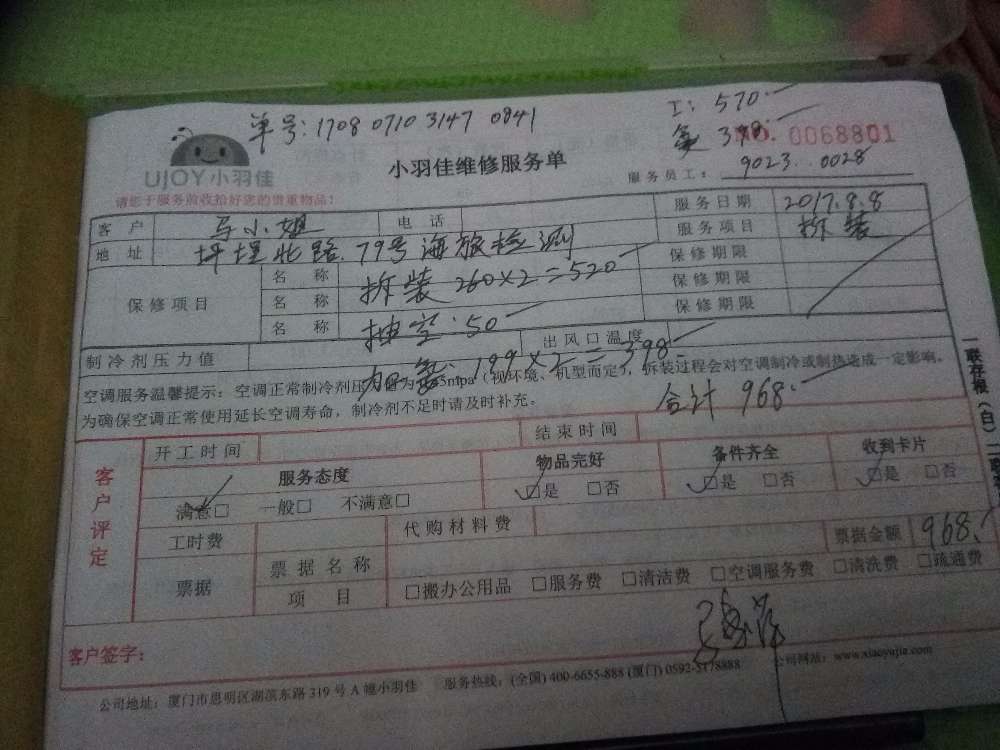 单号:1708 0710 3147 0841
工: 570.
氟 398.
NO. 0068801
UJOY小羽佳
小羽佳维修服务单
服务员工: 9023. 0028
请您于服务前收拾好您的贵重物品!
客户 马小姐 电话 服务日期 2017.8.8
地址 坪埕北路.79号海旅检测 服务项目 拆装
保修项目 名称 拆装 260×2=520 保修期限
名称 抽空:50 保修期限
名称 保修期限
制冷剂压力值 加氟: 199×2=398. 出风口温度
空调服务温馨提示:空调正常制冷剂压力值为 5mpa(视环境、机型而定),拆装过程会对空调制冷或制热造成一定影响。
为确保空调正常使用延长空调寿命,制冷剂不足时请及时补充。
合计 968.
一联存根(白)二联
客户评定
开工时间 结束时间
服务态度 物品完好 备件齐全 收到卡片
满意□ 一般□ 不满意□ □是 □否 □是 □否 □是 □否
工时费 代购材料费 票据金额 968.
票据 票据名称
项目 □搬办公用品 □服务费 □清洁费 □空调服务费 □清洗费 □疏通费
客户签字:
公司地址:厦门市思明区湖滨东路319号A幢小羽佳 服务热线:(全国)400-6655-888(厦门)0592-5178888 公司网站:www.xiaoyujia.com